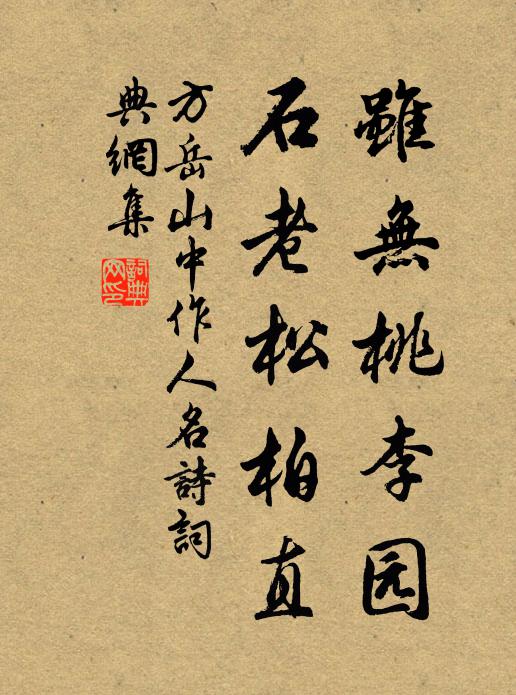 雖無桃李园
石老松柏直
方岳山中作人名詩詞
典網集
詞典
网印